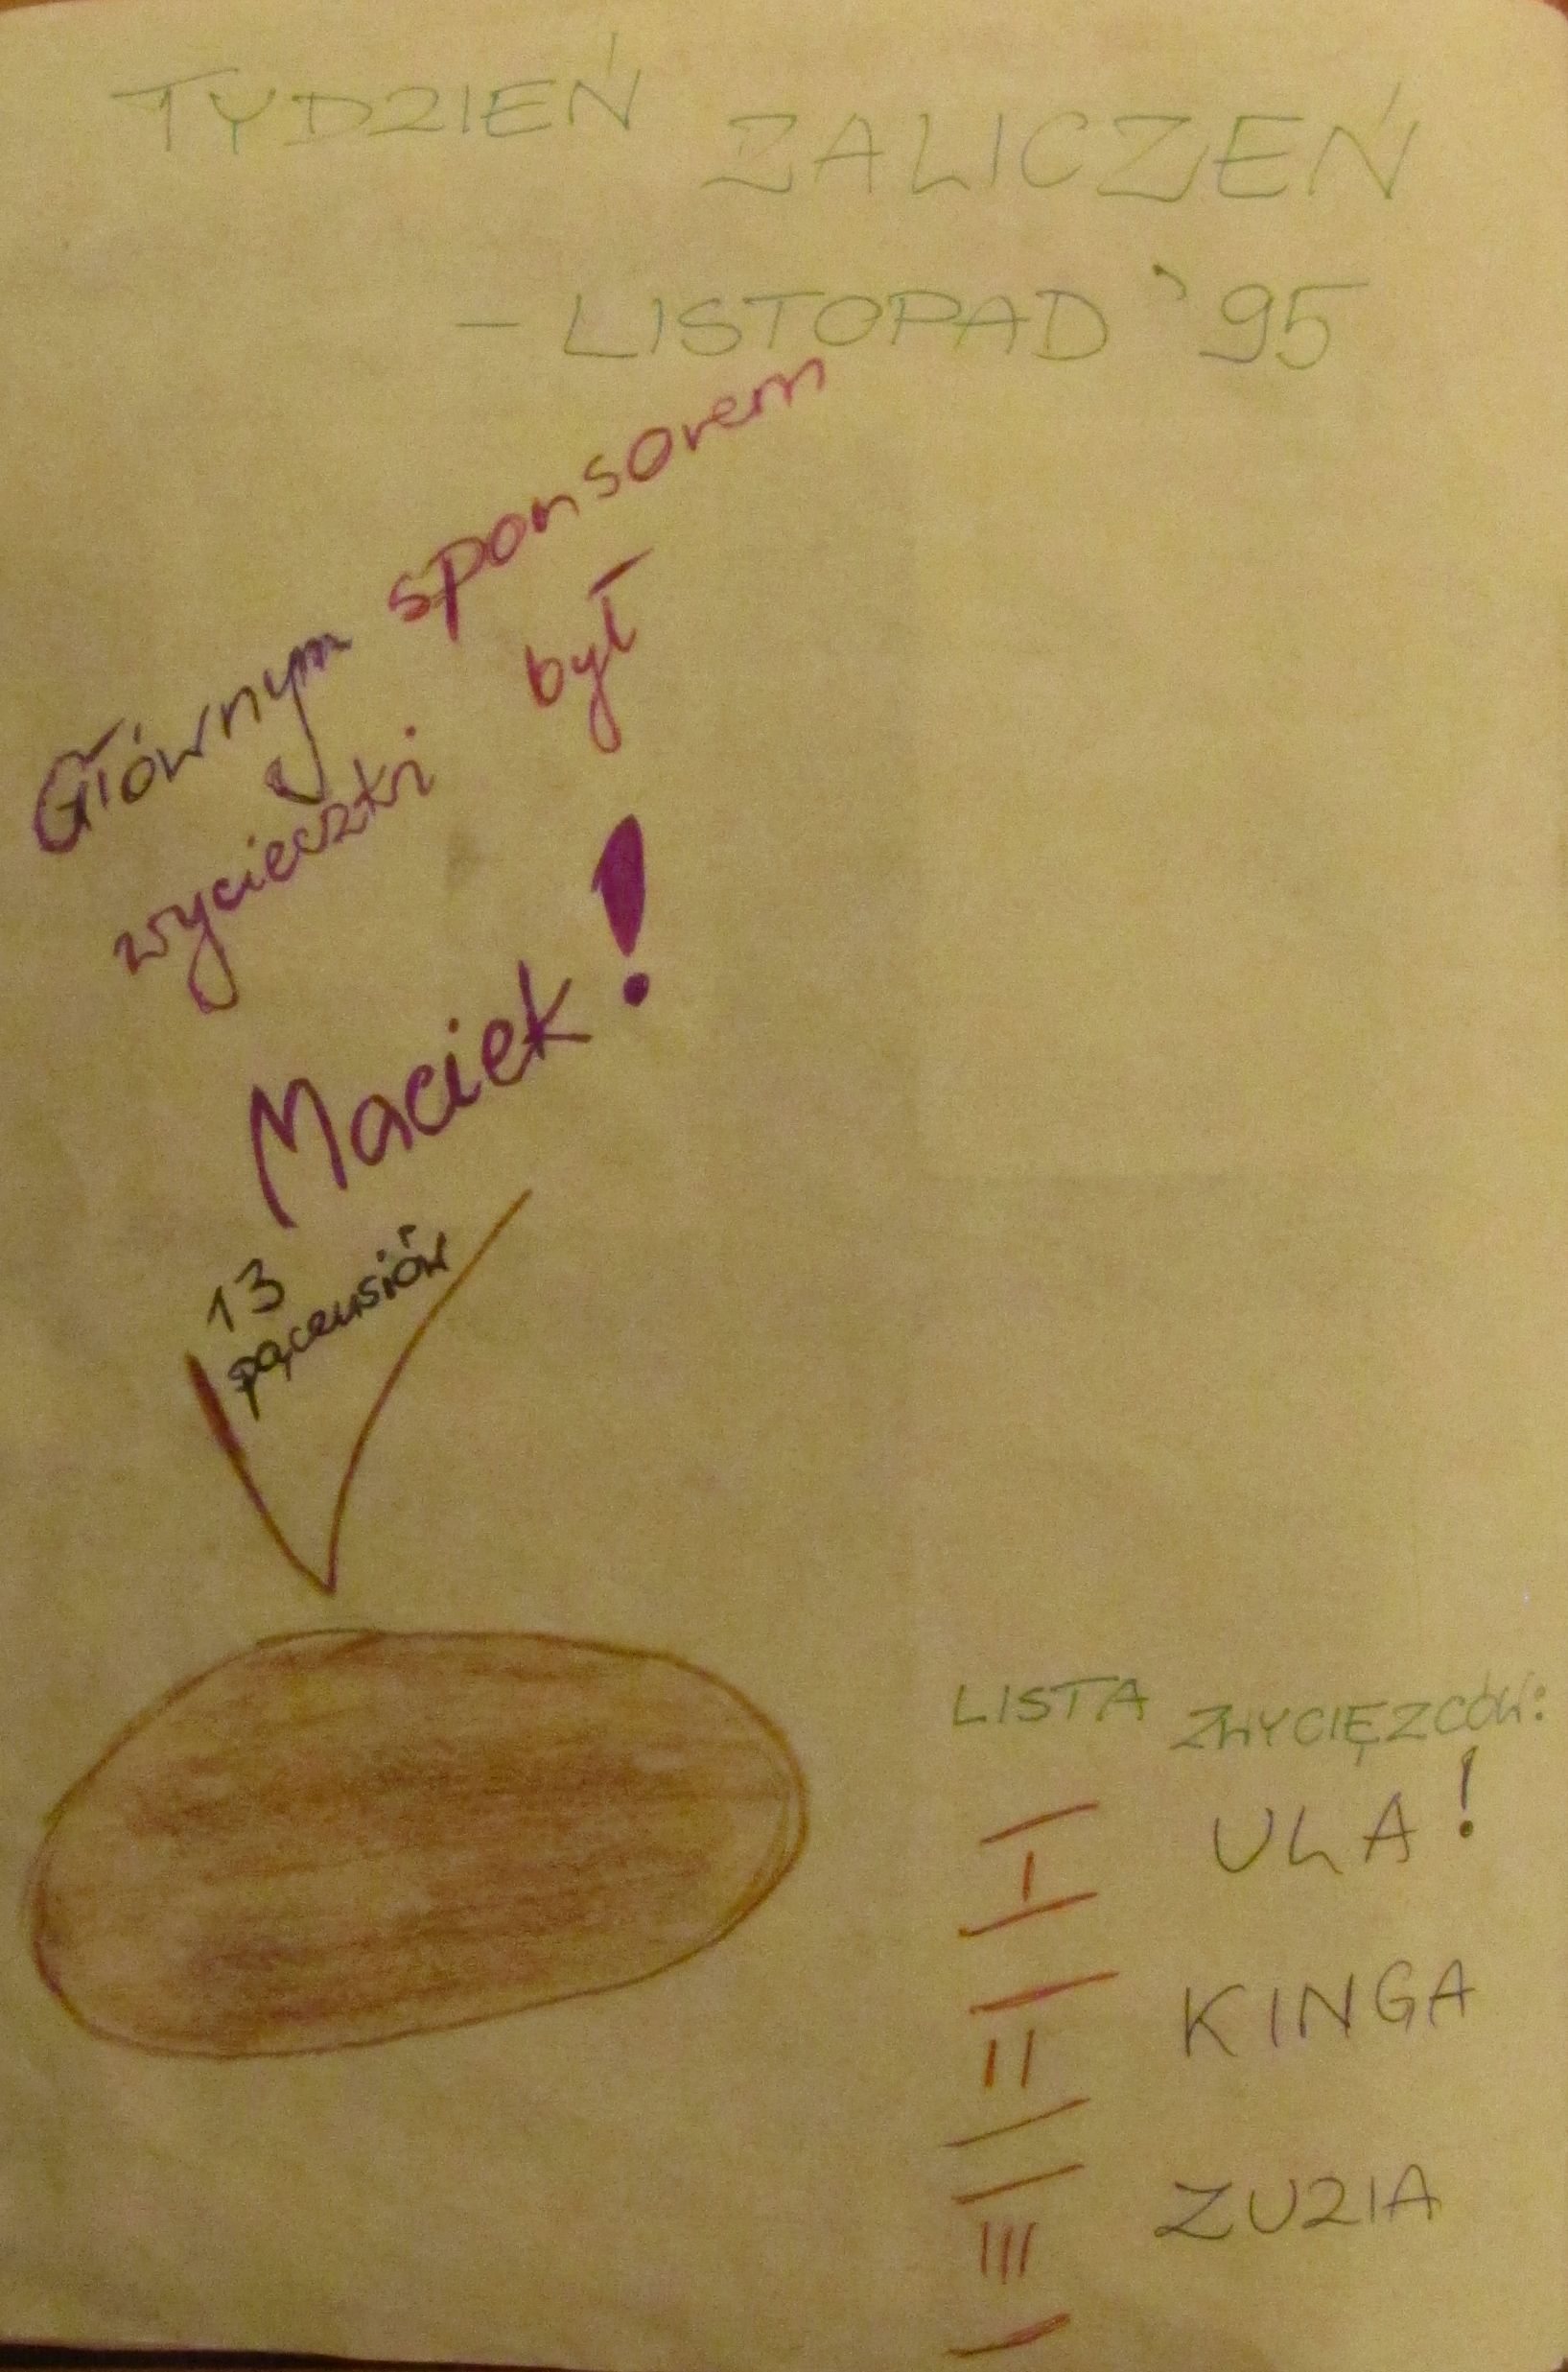 TYDZIEŃ ZALICZEŃ
- LISTOPAD '95
Głównym sponsorem
wycieczki był
Maciek!
13
pącusiów
LISTA ZWYCIĘZCÓW:
I ULA!
II KINGA
III ZUZIA